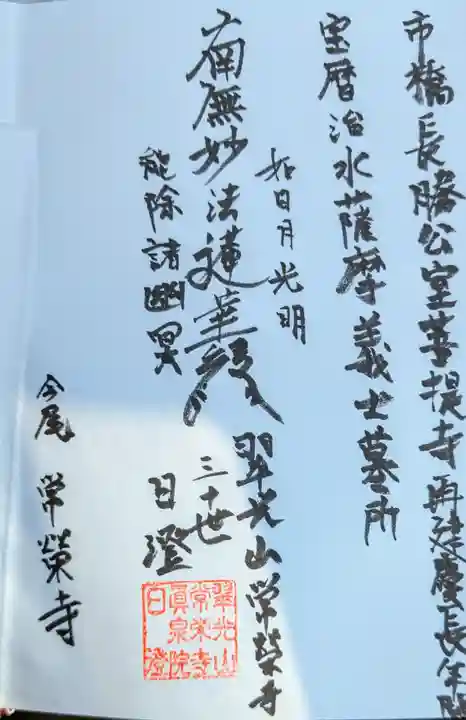 市橋長勝公室菩提寺再建慶長年間
宝暦治水薩摩義士墓所
如日月光明
南無妙法蓮華経
能除諸幽冥
翠光山常榮寺
三十世
日澄
今尾 常榮寺
翠光山
常栄寺
眞泉院
日澄